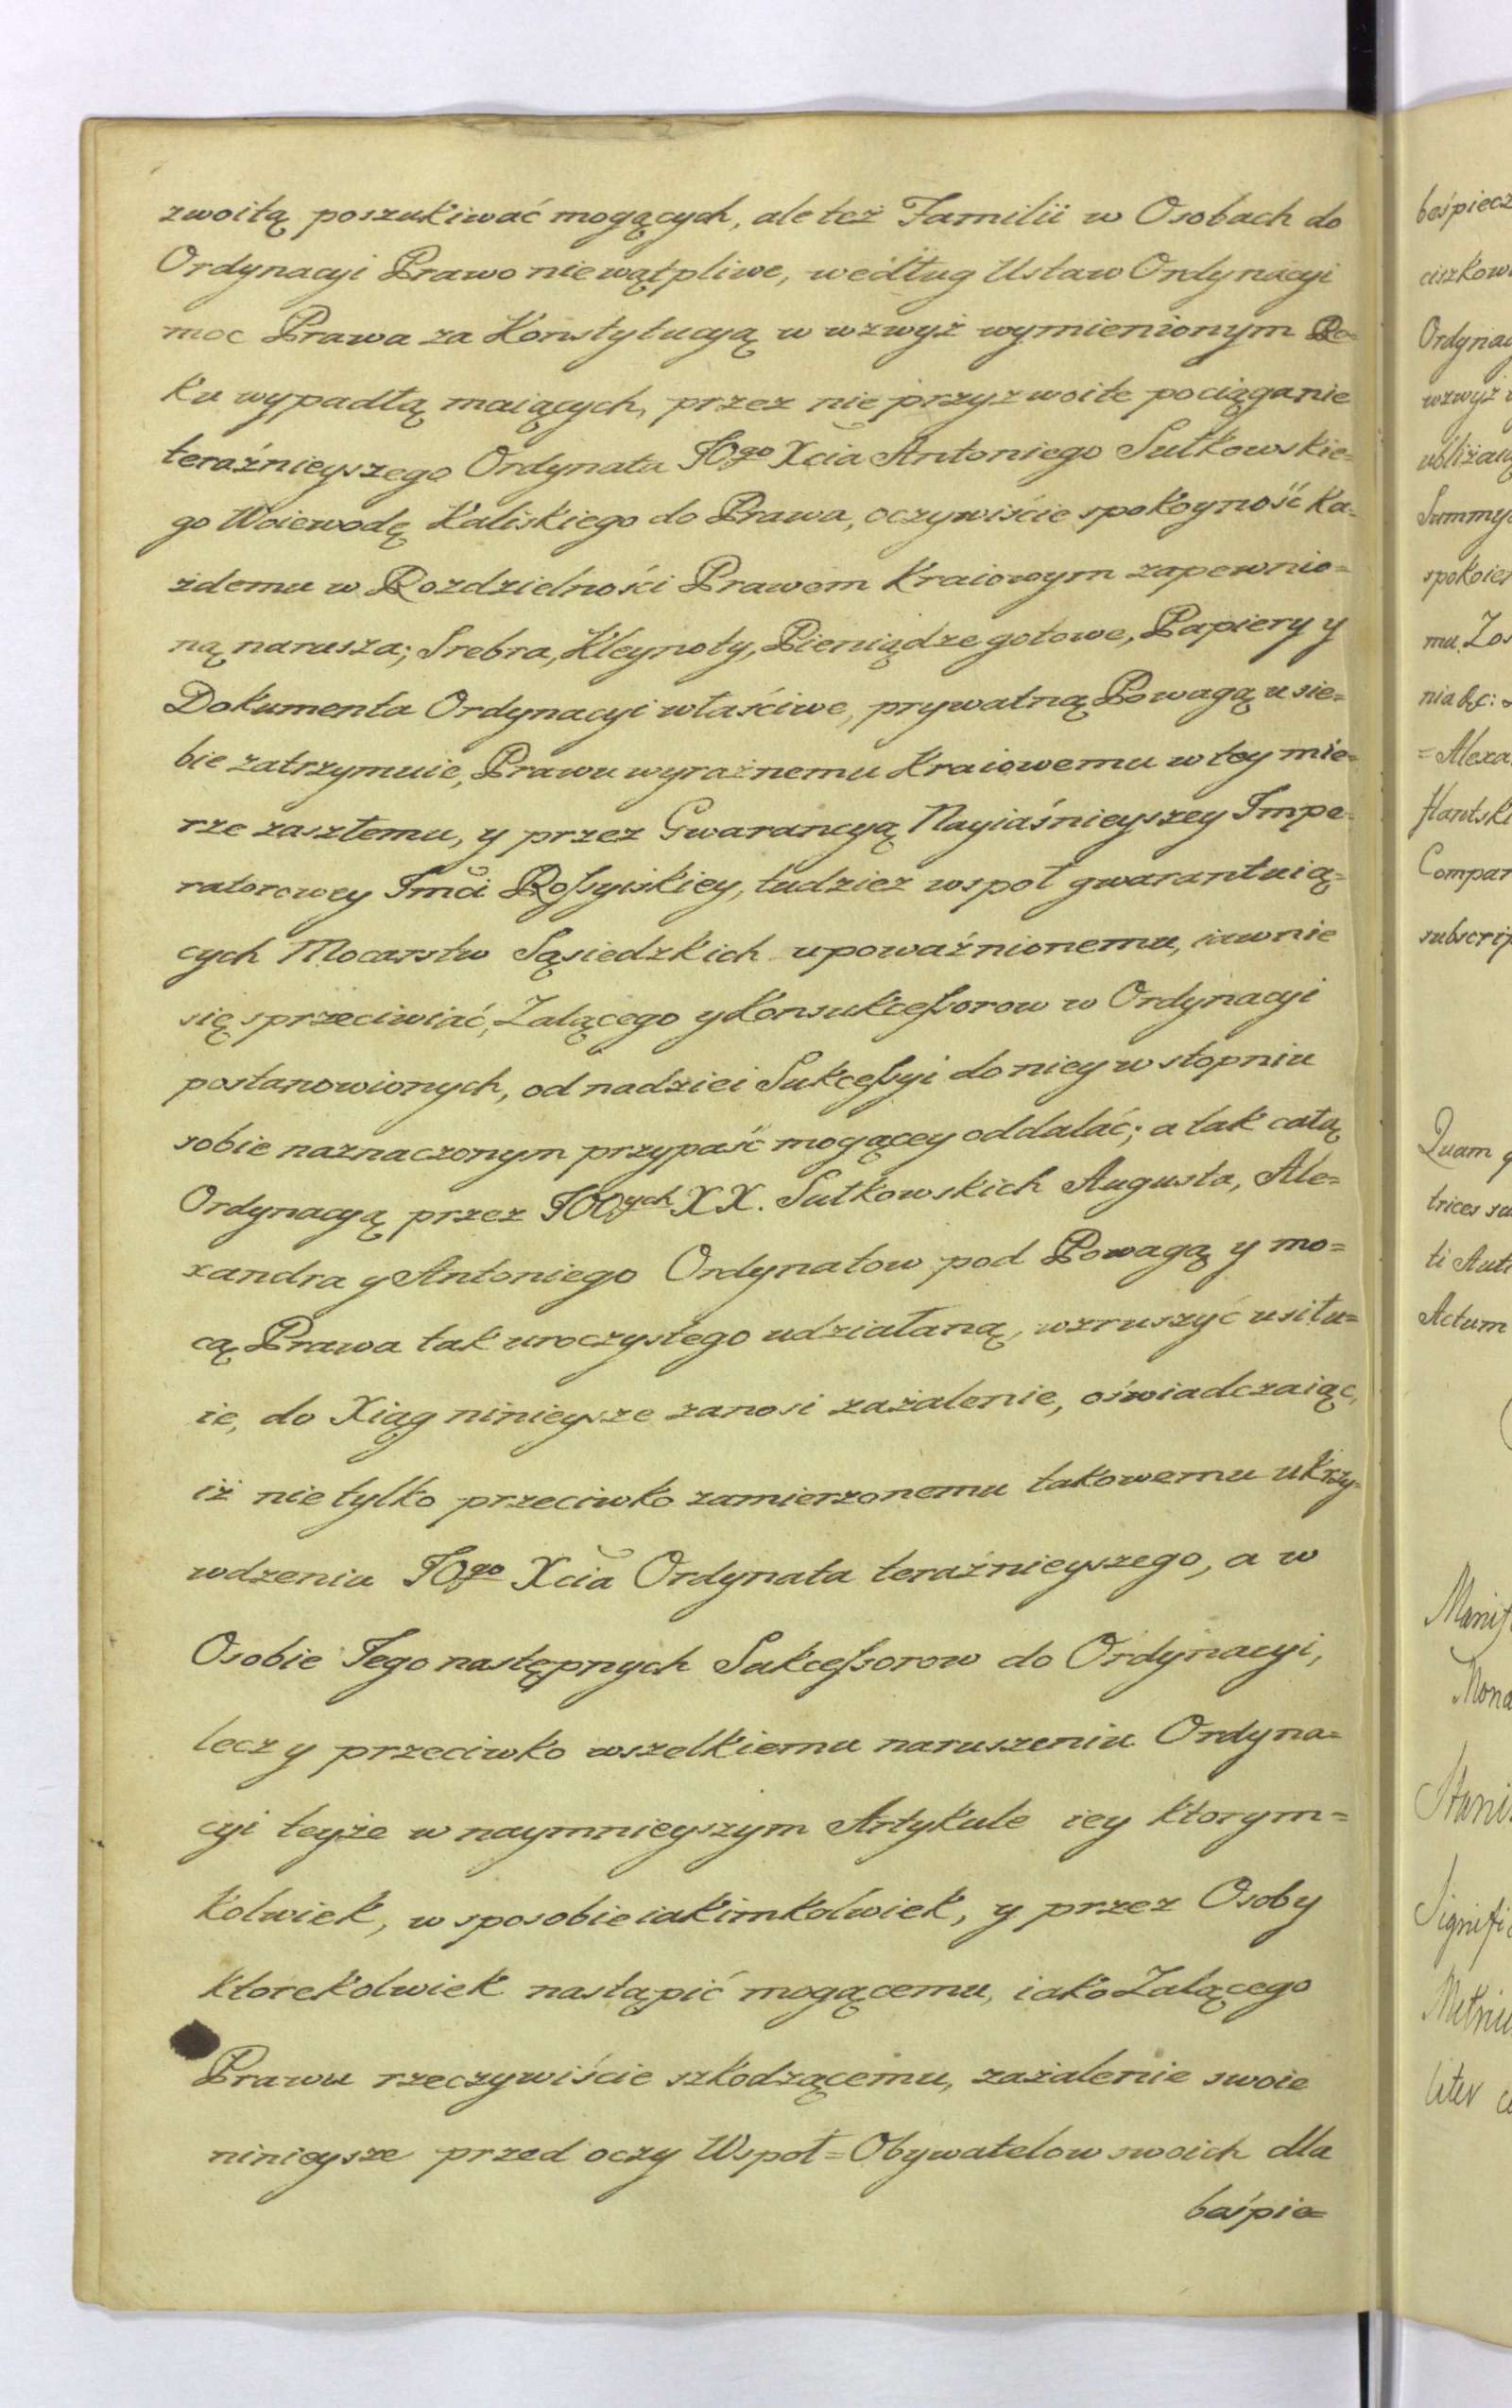 zwoitą poszukiwać mogących, ale też Familii w Osobach do
Ordynacyi Prawo niewątpliwe, według Ustaw Ordynacyi
moc Prawa za Konstytucyą w wzwyż wymienionym Ro=
ku wypadłą maiących, przez nieprzyzwoite pociąganie
teraźnieyszego Ordynata JOgo Xcia Antoniego Sułkowskie=
go Woiewodę Kaliskiego do Prawa, oczywiście spokoyność ka=
żdemu w Rozdzielności Prawem Kraiowym zapewnio=
ną narusza; Srebra, Kleynoty, Pieniądze gotowe, Papiery y
Dokumenta Ordynacyi właściwe, prywatną Powagą u sie=
bie zatrzymuie, Prawu wyraźnemu Kraiowemu w tey mie=
rze zaszłemu, y przez Gwarancyą Nayiaśnieyszey Impe=
ratorowey Jmci Rossyiskiey, tudzież wspoł gwarantuią=
cych Mocarstw Sąsiedzkich upoważnionemu, iawnie
się sprzeciwiać, Żalącego y Konsukcessorow w Ordynacyi
postanowionych, od nadziei Sukcessyi do niey w stopniu
sobie naznaczonym przypaść mogącey oddalać; a tak całą
Ordynacyą przez JOOych XX. Sułkowskich Augusta, Ale=
xandra y Antoniego Ordynatow pod Powagą y mo=
cą Prawa tak uroczystego udziałaną, wzruszyć usiłu=
ie, do Xiąg ninieysze zanosi zażalenie, oświadczaiąc,
iż nie tylko przeciwko zamierzonemu takowemu ukrzy=
wdzeniu JOgo Xcia Ordynata teraźnieyszego, a w
Osobie Jego następnych Sukcessorow do Ordynacyi,
lecz y przeciwko wszelkiemu naruszeniu Ordyna=
cyi teyże w naymnieyszym Artykule iey ktorym=
kolwiek, w sposobie iakimkolwiek, y przez Osoby
ktorekolwiek nastąpić mogącemu, iako Żalącego
Prawu rzeczywiście szkodzącemu, zażalenie swoie
ninieysze przed oczy Wspoł=Obywatelow swoich dla
beśpie=
beśpiecz
ciszkow
Ordynac
wzwyż
ubliżaią
Summy
spokoie
mu. Zos
nia &c:
=Alexa
Compar
subscrip
Quam
trices sa
ti
Actum
Manif
Stanis
Signifi
liter